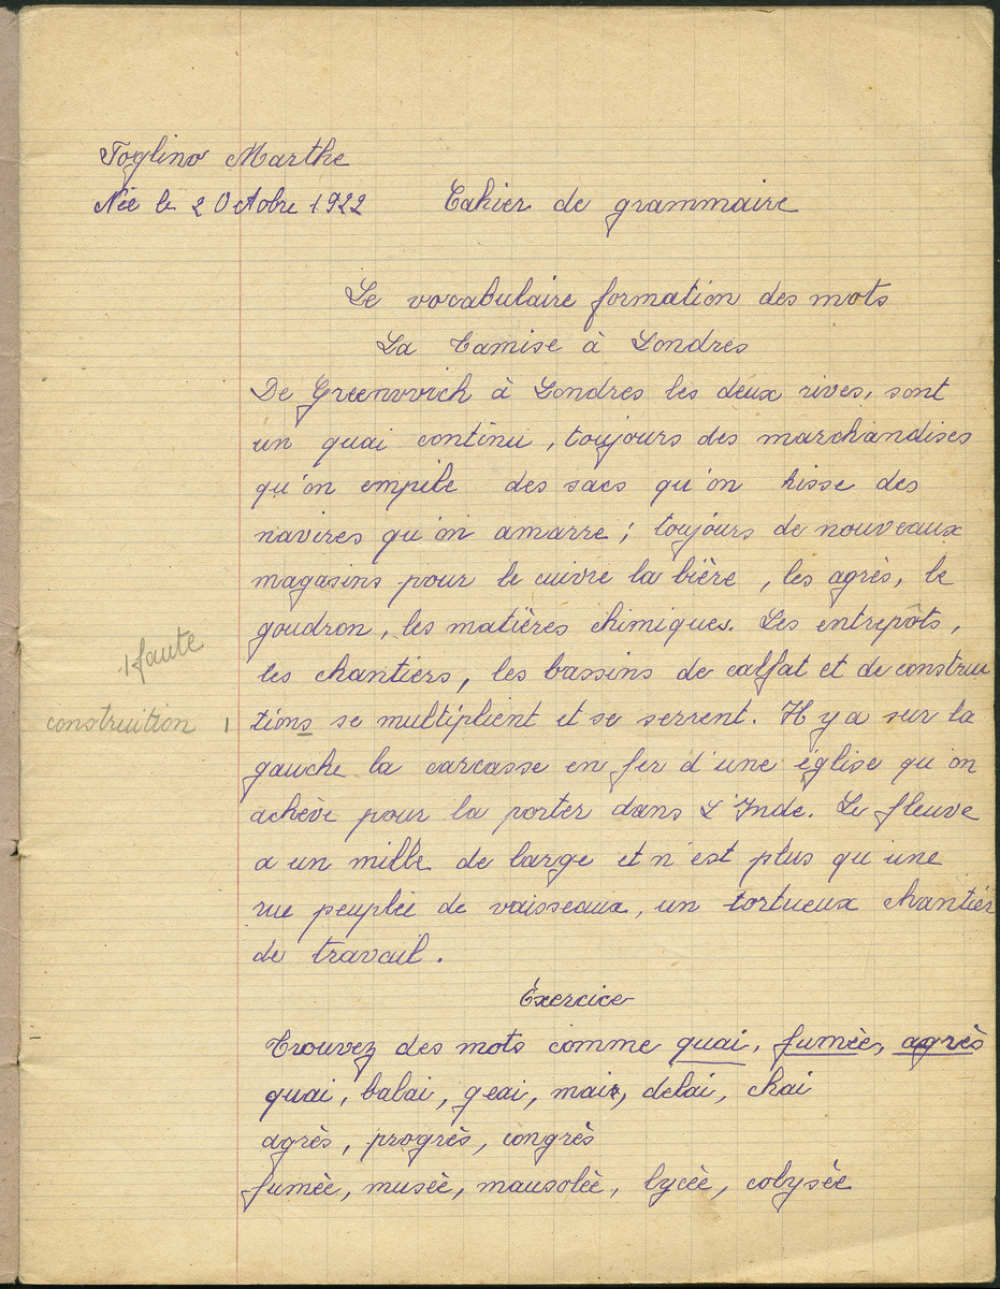 Toglino Marthe
Née le 2 Octobre 1922 Cahier de grammaire
Le vocabulaire formation des mots
La Tamise à Londres
De Greenwich à Londres les deux rives, sont
un quai continu, toujours des marchandises
qu'on empile des sacs qu'on hisse des
navires qu'on amarre ; toujours de nouveaux
magasins pour le cuivre la bière, les agrès, le
goudron, les matières chimiques. Les entrepôts,
1 faute
les chantiers, les bassins de calfat et de construc
construction 1 tions se multiplient et se serrent. Il y a sur la
gauche la carcasse en fer d'une église qu'on
achève pour la porter dans L'Inde. Le fleuve
a un mille de large et n'est plus qu'une
rue peuplée de vaisseaux, un tortueux chantier
de travail.
Exercice
Trouvez des mots comme quai, fumée, agrès
quai, balai, geai, mai, délai, chai
agrès, progrès, congrès
fumée, musée, mausolée, lycée, colysée